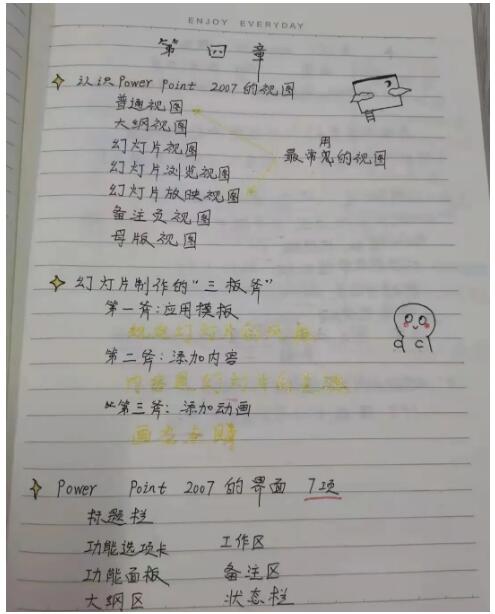 ENJOY EVERYDAY
第四章
认识Power Point 2007的视图
普通视图
大纲视图
幻灯片视图
用
最常见的视图
幻灯片浏览视图
幻灯片放映视图
备注页视图
母版视图
幻灯片制作的“三板斧”
第一斧：应用模板
幻灯片的风格
第二斧：添加内容
内容是幻灯片的
第三斧：添加动画
画龙点睛
Power Point 2007的界面 7项
标题栏
功能选项卡 工作区
功能面板 备注区
大纲区 状态栏